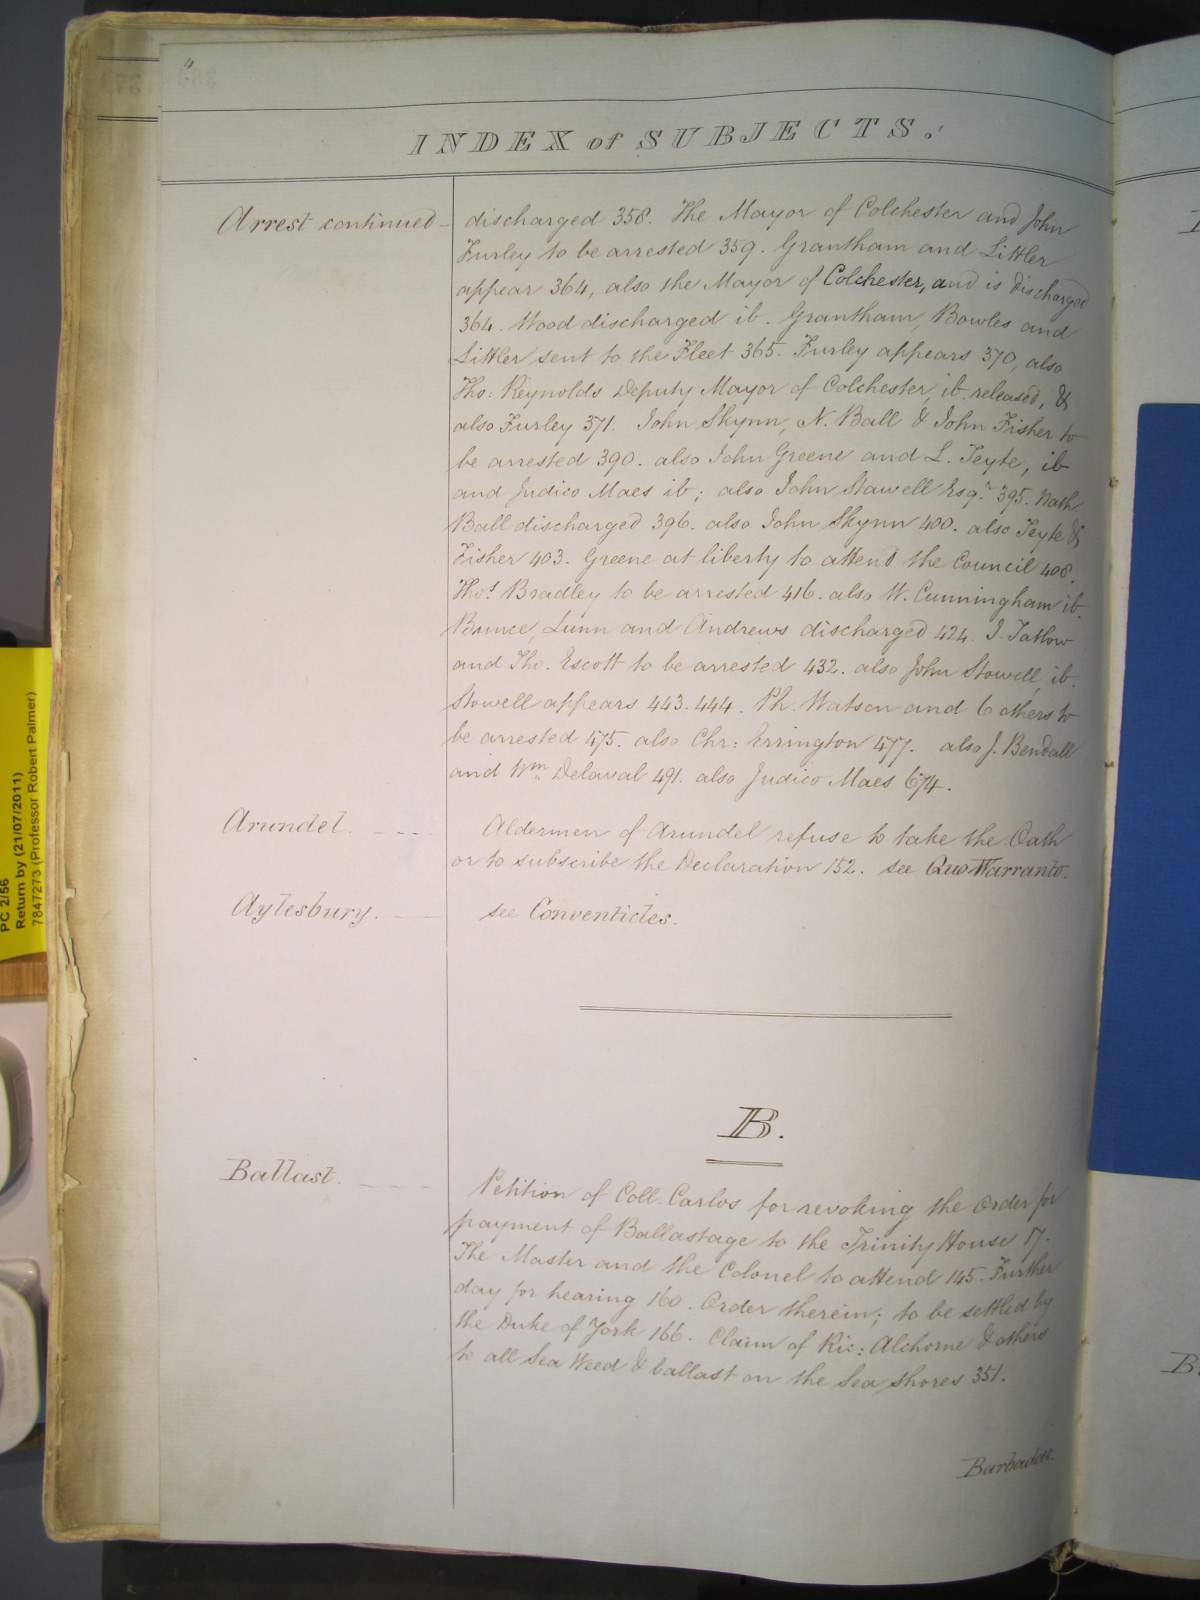 INDEX of SUBJECTS.
Arrest continued - discharged 358. The Mayor of Colchester and John
Furley to be arrested 359. Grantham and Littler
appear 364, also the Mayor of Colchester, and is discharged
364. Wood discharged ib. Grantham, Bowles and
Littler sent to the Fleet 365. Furley appears 370, also
Tho: Reynolds Deputy Mayor of Colchester, ib. released, &
also Furley 371. John Skynn, N. Ball & John Fisher to
be arrested 390. also John Greene and L. Teyte, ib
and Judico Maes ib; also John Stawell Esqr. 395. Nath.
Ball discharged 396. also John Skynn 400. also Teyte &
Fisher 403. Greene at liberty to attend the Council 408.
Thos. Bradley to be arrested 416. also W. Cunningham ib.
Bunce, Lunn and Andrews discharged 424. J. Tatlow
and Tho. Escott to be arrested 432. also John Stowell, ib.
Stowell appears 443. 444. Ph. Watson and 6 others to
be arrested 475. also Chr: Errington 477. also J. Bendall
and Wm. Delaval 491. also Judico Maes 674.
Arundel. - - - Aldermen of Arundel refuse to take the Oath
or to subscribe the Declaration 152. see Quo Warranto.
Aylesbury. - - see Conventicles.
B.
Ballast. - - - Petition of Coll. Carlos for revoking the order for
payment of Ballastage to the Trinity House 17.
The Master and the Colonel to attend 145. Further
day for hearing 160. Order therein; to be settled by
the Duke of York 166. Claim of Ric: Alchorne & others
to all Sea Weed & ballast on the Sea shores 351.
Barbadoes.
PC 2/56
Return by (21/07/2011)
7847273 (Professor Robert Palmer)